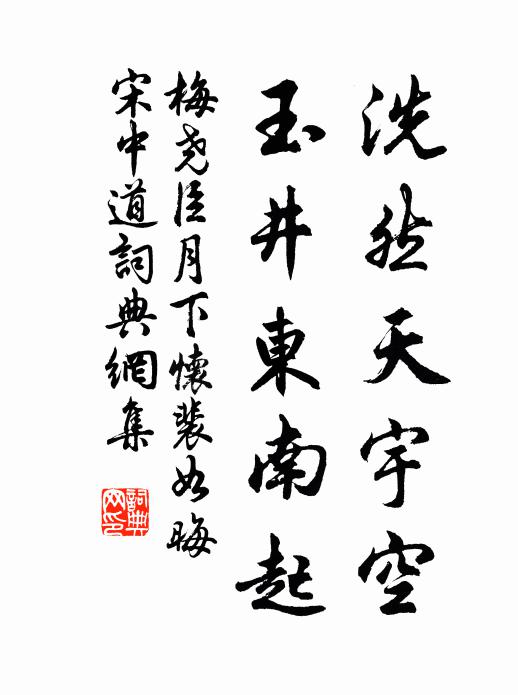 洗然天宇空
玉井東南起
梅堯臣月下懷裴如晦
宋中道詞典網集
詞典
网印